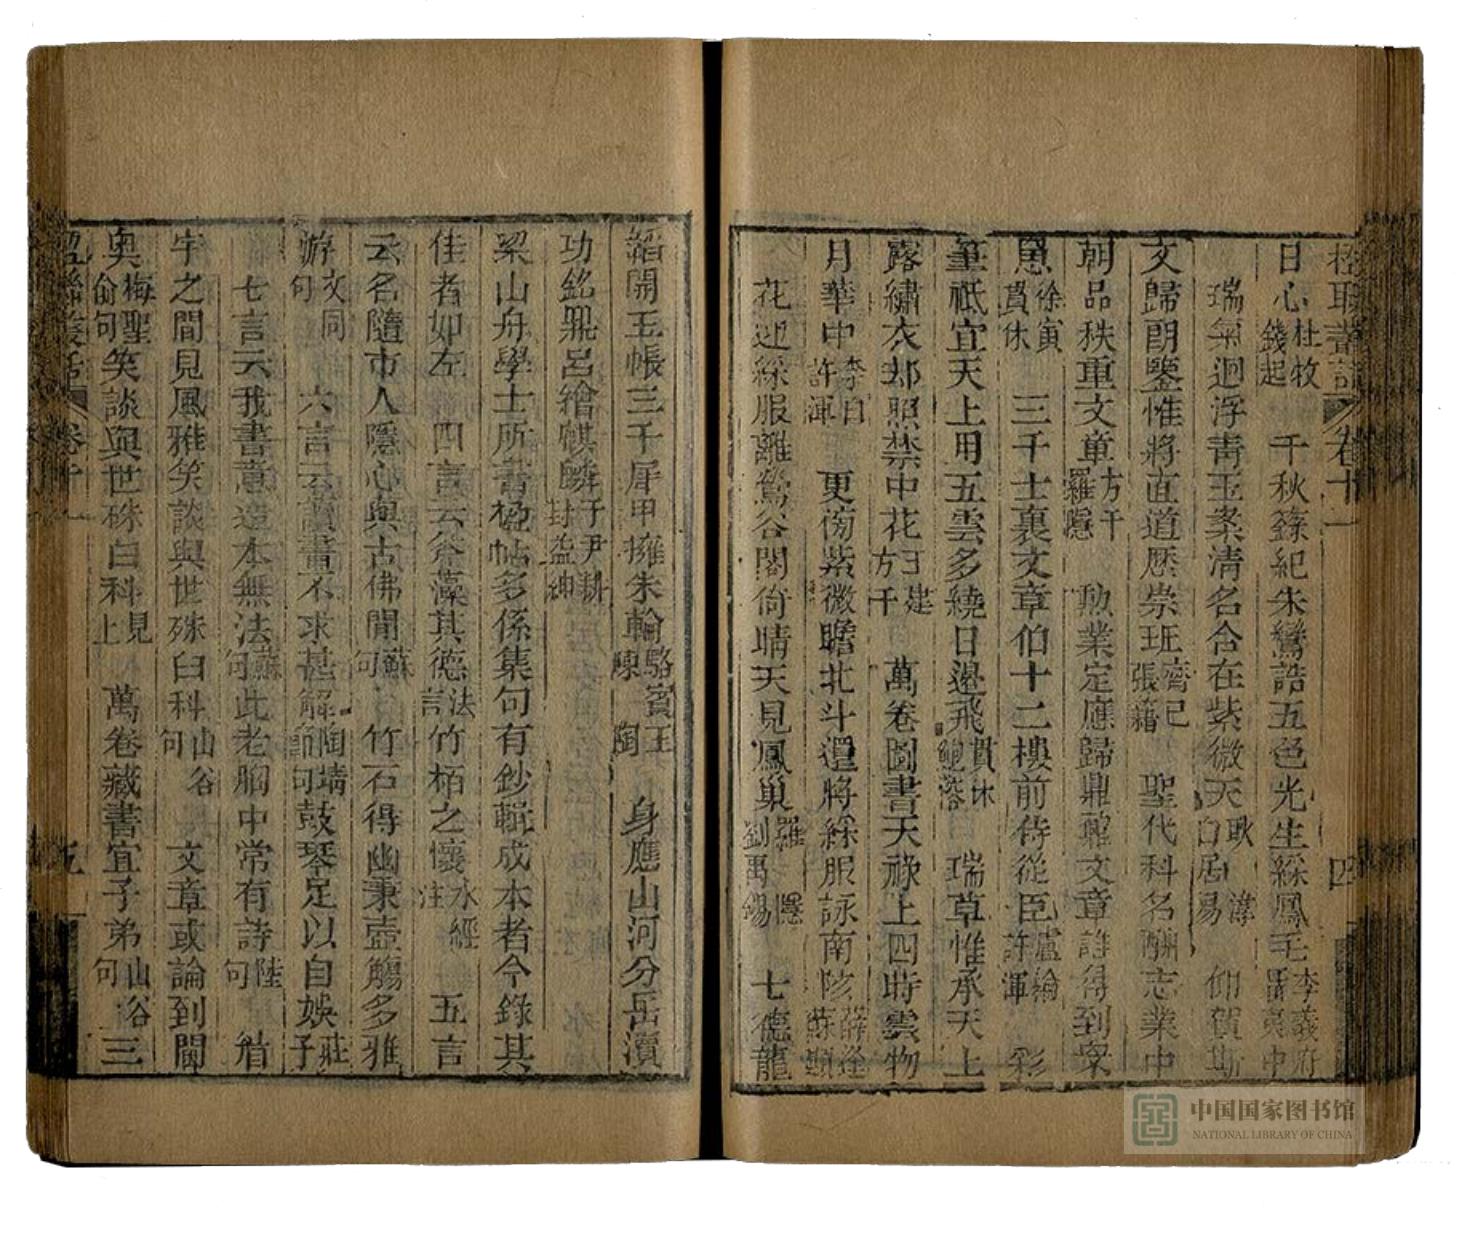 楹聯叢話 卷十一 四
日心杜牧錢起 千秋籙紀朱鸞誥五色光生綵鳳毛李義府溫庭中
瑞氣迴浮青玉案清名合在紫微天耿湋白居易 仰賀斯
文歸朗鑒惟將直道歷崇班齊己張籍 聖代科名酬志業中
朝品秩重文章方干羅隱 勲業定應歸鼎鼐文章誰得到罘
罳徐寅貫休 三千士裏文章伯十二樓前侍從臣盧綸許渾 彩
筆祗宜天上用五雲多繞日邊飛貫休鮑溶 瑞草惟承天上
露繡衣却照禁中花王建方干 萬卷圖書天祿上四時雲物
月華中李白許渾 更傍紫微瞻北斗還將綵服詠南陔薛逢蘇頲
花迎綵服離鶯谷閣倚晴天見鳳巢羅隱劉禹錫 七德龍
韜開玉帳三千犀甲擁朱輪駱賓王陳陶 身應山河分岳瀆
功銘鼎呂繪麒麟子尹耕封益紳
梁山舟學士所書楹帖多係集句有鈔輯成本者今錄其
佳者如左 四言云斧藻其德法言竹栢之懷水經注 五言
云名隨市人隱心與古佛閒蘇句 竹石得幽秉壺觴多雅
游文同句 六言云讀書不求甚解陶靖節句鼓琴足以自娛莊子
七言云我書意造本無法蘇句此老胸中常有詩陸句 眉
宇之間見風雅笑談與世殊臼科山谷句 文章或論到閫
奥梅聖俞句笑談與世殊臼科見上 萬卷藏書宜子弟山谷句三
楹聯叢話 卷十一 五
中国国家图书馆
NATIONAL LIBRARY OF CHINA